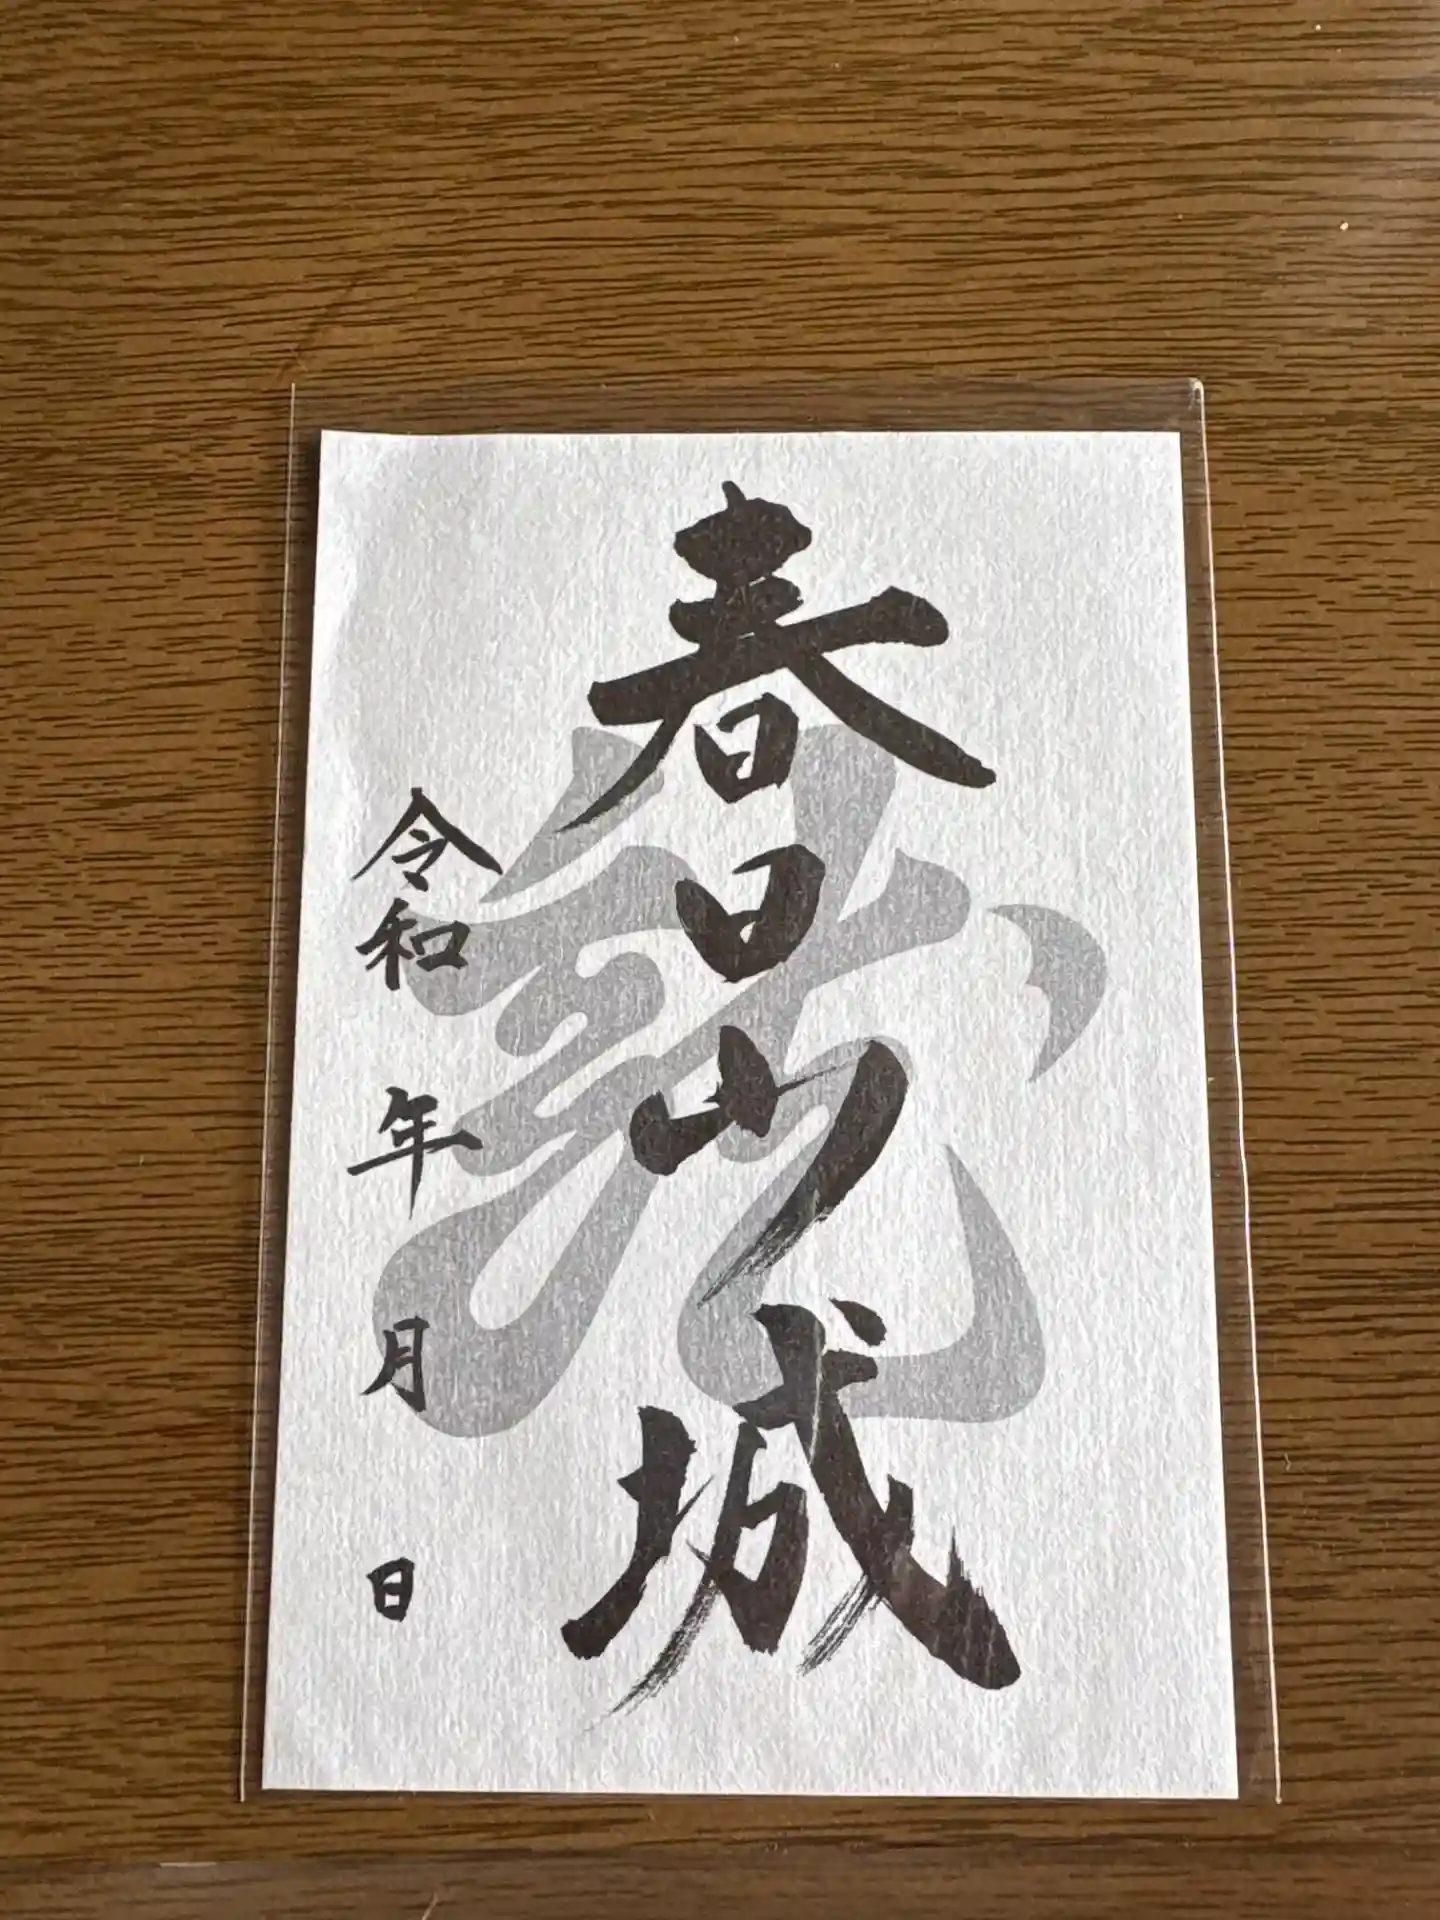 春日山城
令和 年 月 日
龍